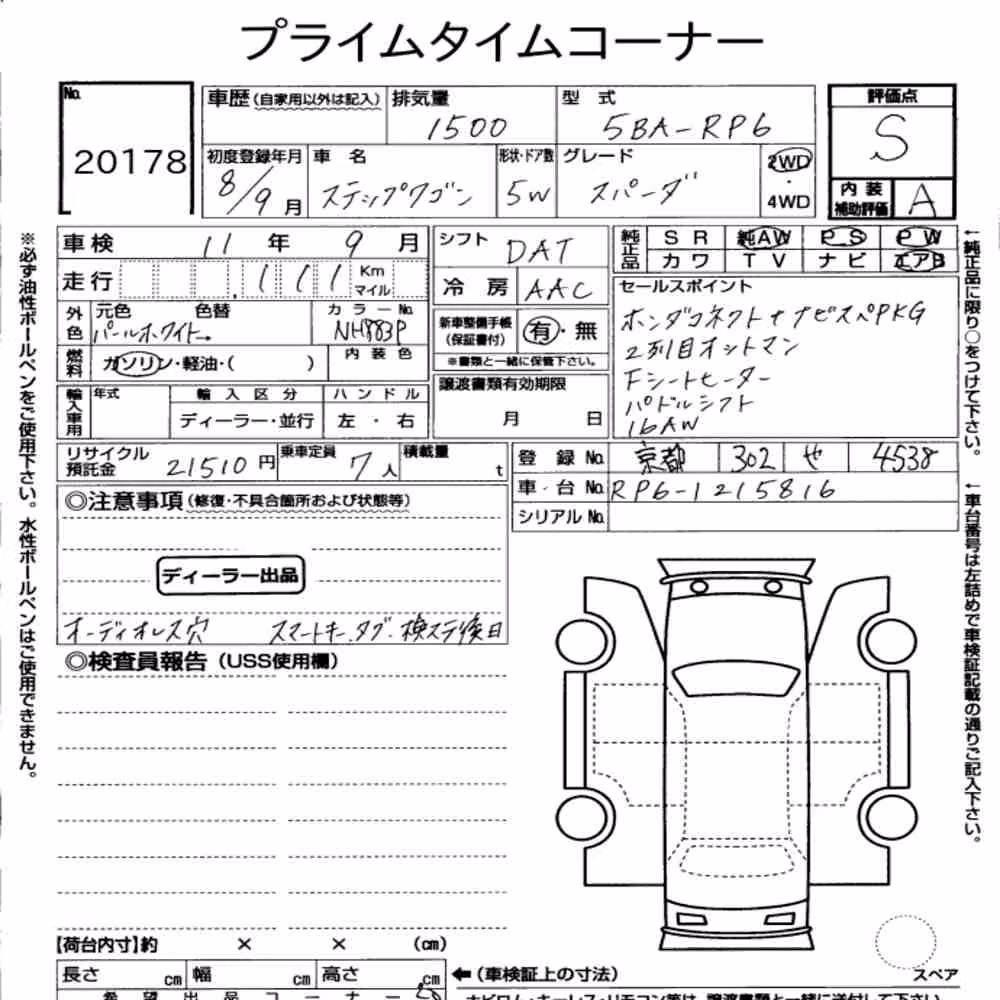 プライムタイムコーナー
No.
20178
車歴(自家用以外は記入)
排気量
1500
型式
5BA-RP6
評価点
S
初度登録年月
8/9月
車名
ステップワゴン
形状・ドア数
5W
グレード
スパーダ
2WD
・
4WD
内装
補助評価
A
車検 11年 9月
走行 111 Km
マイル
シフト
DAT
冷房
AAC
純正品
SR 純AW PS PW
カワ TV ナビ エアB
外色
元色 色替
パールホワイト→
カラーNo.
NH883P
内装色
燃料
ガソリン・軽油・( )
新車整備手帳
(保証書付)
有・無
※書類と一緒に保管下さい。
セールスポイント
ホンダコネクト+ナビスペPKG
2列目オットマン
Fシートヒーター
パドルシフト
16AW
輸入車用
年式
輸入区分
ディーラー・並行
ハンドル
左・右
譲渡書類有効期限
月 日
リサイクル
預託金
21510円
乗車定員
7人
積載量
t
登録No. 京都 302 せ 4538
車台No. RP6-1215816
シリアルNo.
◎注意事項(修復・不具合箇所および状態等)
ディーラー出品
オーディオレス穴 スマートキー、タグ、検ステ後日
◎検査員報告(USS使用欄)
【荷台内寸】約 × × (cm)
長さ cm 幅 cm 高さ cm
←(車検証上の寸法)
スペア
希望出品コーナー
ナビロム・キーレス・リモコン等は、譲渡書類と一緒に送付して下さい
※必ず油性ボールペンをご使用下さい。水性ボールペンはご使用できません。
←純正品に限り○をつけて下さい。
←車台番号は左詰めで車検証記載の通りご記入下さい。